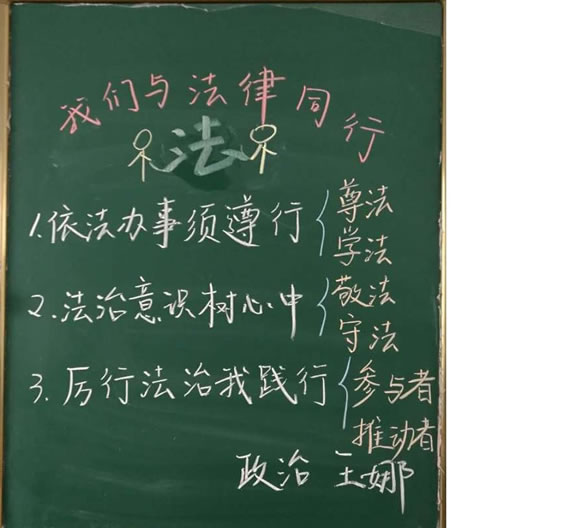 我们与法律同行
法
1.依法办事须遵行{尊法
学法
2.法治意识树心中{敬法
守法
3.厉行法治我践行{参与者
推动者
政治 王娜